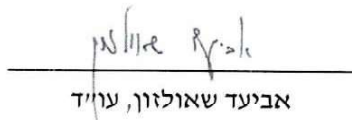 אביעד שאולזון
אביעד שאולזון, עו״ד